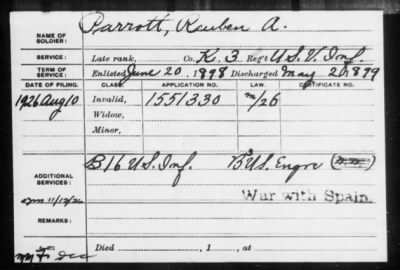 NAME OF SOLDIER: Parrott, Reuben A.
SERVICE: Late rank, Co. K. 3 Reg't U.S.V. Inf.
TERM OF SERVICE: Enlisted June 20, 1898 Discharged May 2, 1899
DATE OF FILING. CLASS. APPLICATION NO. LAW. CERTIFICATE NO.
1926 Aug 10 Invalid, 1551330 m/26
Widow,
Minor,
ADDITIONAL SERVICES: B 16 U.S. Inf. B U.S. Engrs
War with Spain.
REMARKS:
Died , 1 , at